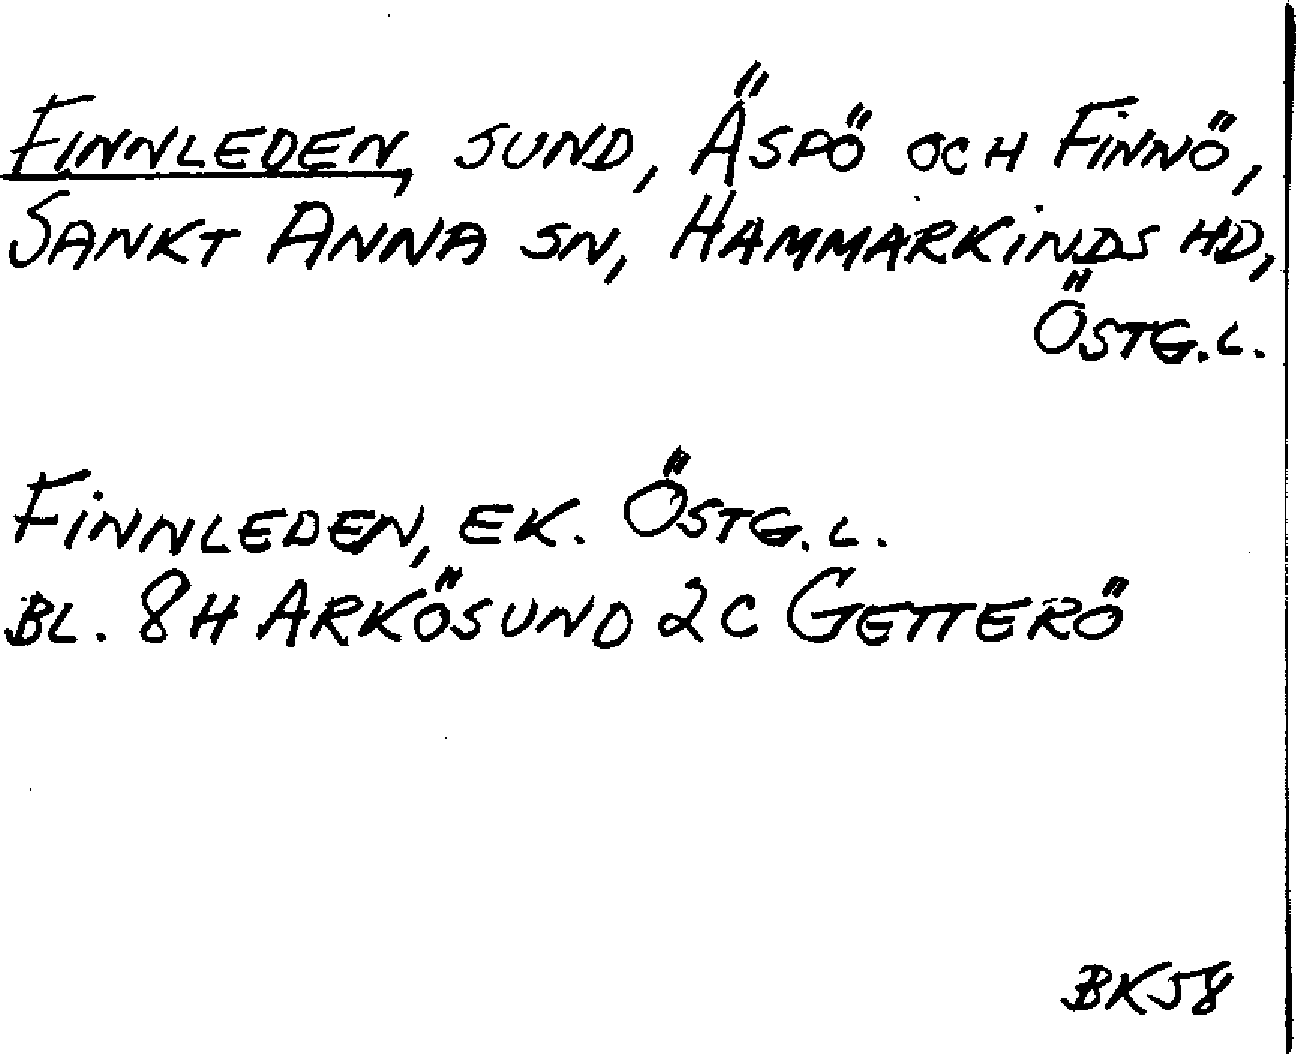 FINNLEDEN, SUND, ÄSPÖ OCH FINNÖ,
SANKT ANNA SN, HAMMARKINDS HD,
ÖSTG.L.
FINNLEDEN, EK. ÖSTG.L.
BL. 8H ARKÖSUND 2C GETTERÖ
BK58